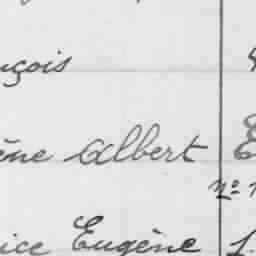 çois
ène Albert
nº
ice Eugène